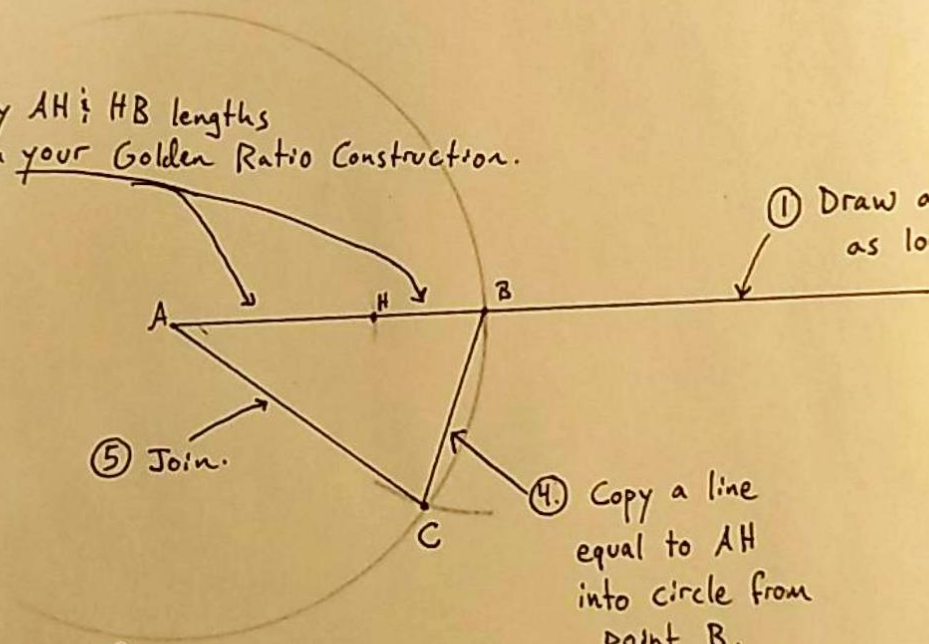 AH & HB lengths
your Golden Ratio Construction.
① Draw
as
A
H
B
⑤ Join.
C
④. Copy a line
equal to AH
into circle from
point B.